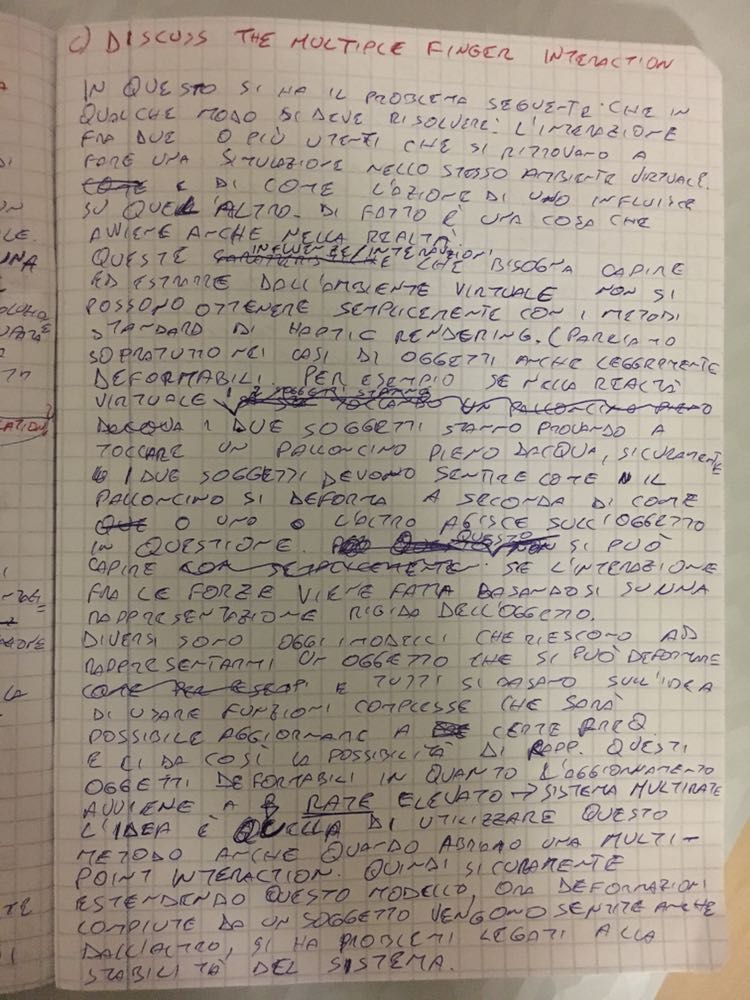 C) DISCUSS THE MULTIPLE FINGER INTERACTION
IN QUESTO SI HA IL PROBLEMA SEGUENTE CHE IN
QUALCHE MODO SI DEVE RISOLVERE: L'INTERAZIONE
FRA DUE O PIÙ UTENTI CHE SI RITROVANO A
FARE UNA SIMULAZIONE NELLO STESSO AMBIENTE VIRTUALE.
COME E DI COME L'AZIONE DI UNO INFLUISCE
SU QUELL'ALTRO. DI FATTO È UNA COSA CHE
AVVIENE ANCHE NELLA REALTÀ.
QUESTE INFLUENZE/INTERAZIONI CHE BISOGNA CAPIRE
ED ESTRARRE DALL'AMBIENTE VIRTUALE NON SI
POSSONO OTTENERE SEMPLICEMENTE CON I METODI
STANDARD DI HAPTIC RENDERING. (PARLIAMO
SOPRATUTTO NEI CASI DI OGGETTI ANCHE LEGGERMENTE
DEFORMABILI. PER ESEMPIO SE NELLA REALTÀ
VIRTUALE TOCCANDO UN PALLONCINO PIENO
D'ACQUA I DUE SOGGETTI STANNO PROVANDO A
TOCCARE UN PALLONCINO PIENO D'ACQUA, SICURAMENTE
I DUE SOGGETTI DEVONO SENTIRE COME IL
PALLONCINO SI DEFORMA A SECONDA DI COME
QUE O UNO O L'ALTRO AGISCE SULL'OGGETTO
IN QUESTIONE. QUESTO NON SI PUÒ
CAPIRE SEMPLICEMENTE SE L'INTERAZIONE
FRA LE FORZE VIENE FATTA BASANDOSI SU UNA
RAPPRESENTAZIONE RIGIDA DELL'OGGETTO.
DIVERSI SONO OGGI I MODELLI CHE RIESCONO AD
RAPPRESENTARMI UN OGGETTO CHE SI PUÒ DEFORMARE
COME PER ESEMPI E TUTTI SI BASANO SULL'IDEA
DI USARE FUNZIONI COMPLESSE CHE SARÀ
POSSIBILE AGGIORNARE A CERTE FREQ.
E CI DA COSÌ LA POSSIBILITÀ DI RAPP. QUESTI
OGGETTI DEFORMABILI IN QUANTO L'AGGIORNAMENTO
AVVIENE A RATE ELEVATO → SISTEMA MULTIRATE
L'IDEA È QUELLA DI UTILIZZARE QUESTO
METODO ANCHE QUANDO ABBIAMO UNA MULTI-
POINT INTERACTION. QUINDI SICURAMENTE
ESTENDENDO QUESTO MODELLO, ORA DEFORMAZIONI
COMPIUTE DA UN SOGGETTO VENGONO SENTITE ANCHE
DALL'ALTRO, SI HA PROBLEMI LEGATI ALLA
STABILITÀ DEL SISTEMA.